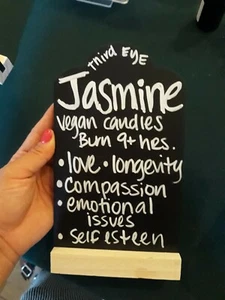 Third EYE
Jasmine
vegan candles
Burn 9+ hrs.
• love • longevity
• compassion
• emotional
issues
• self esteen